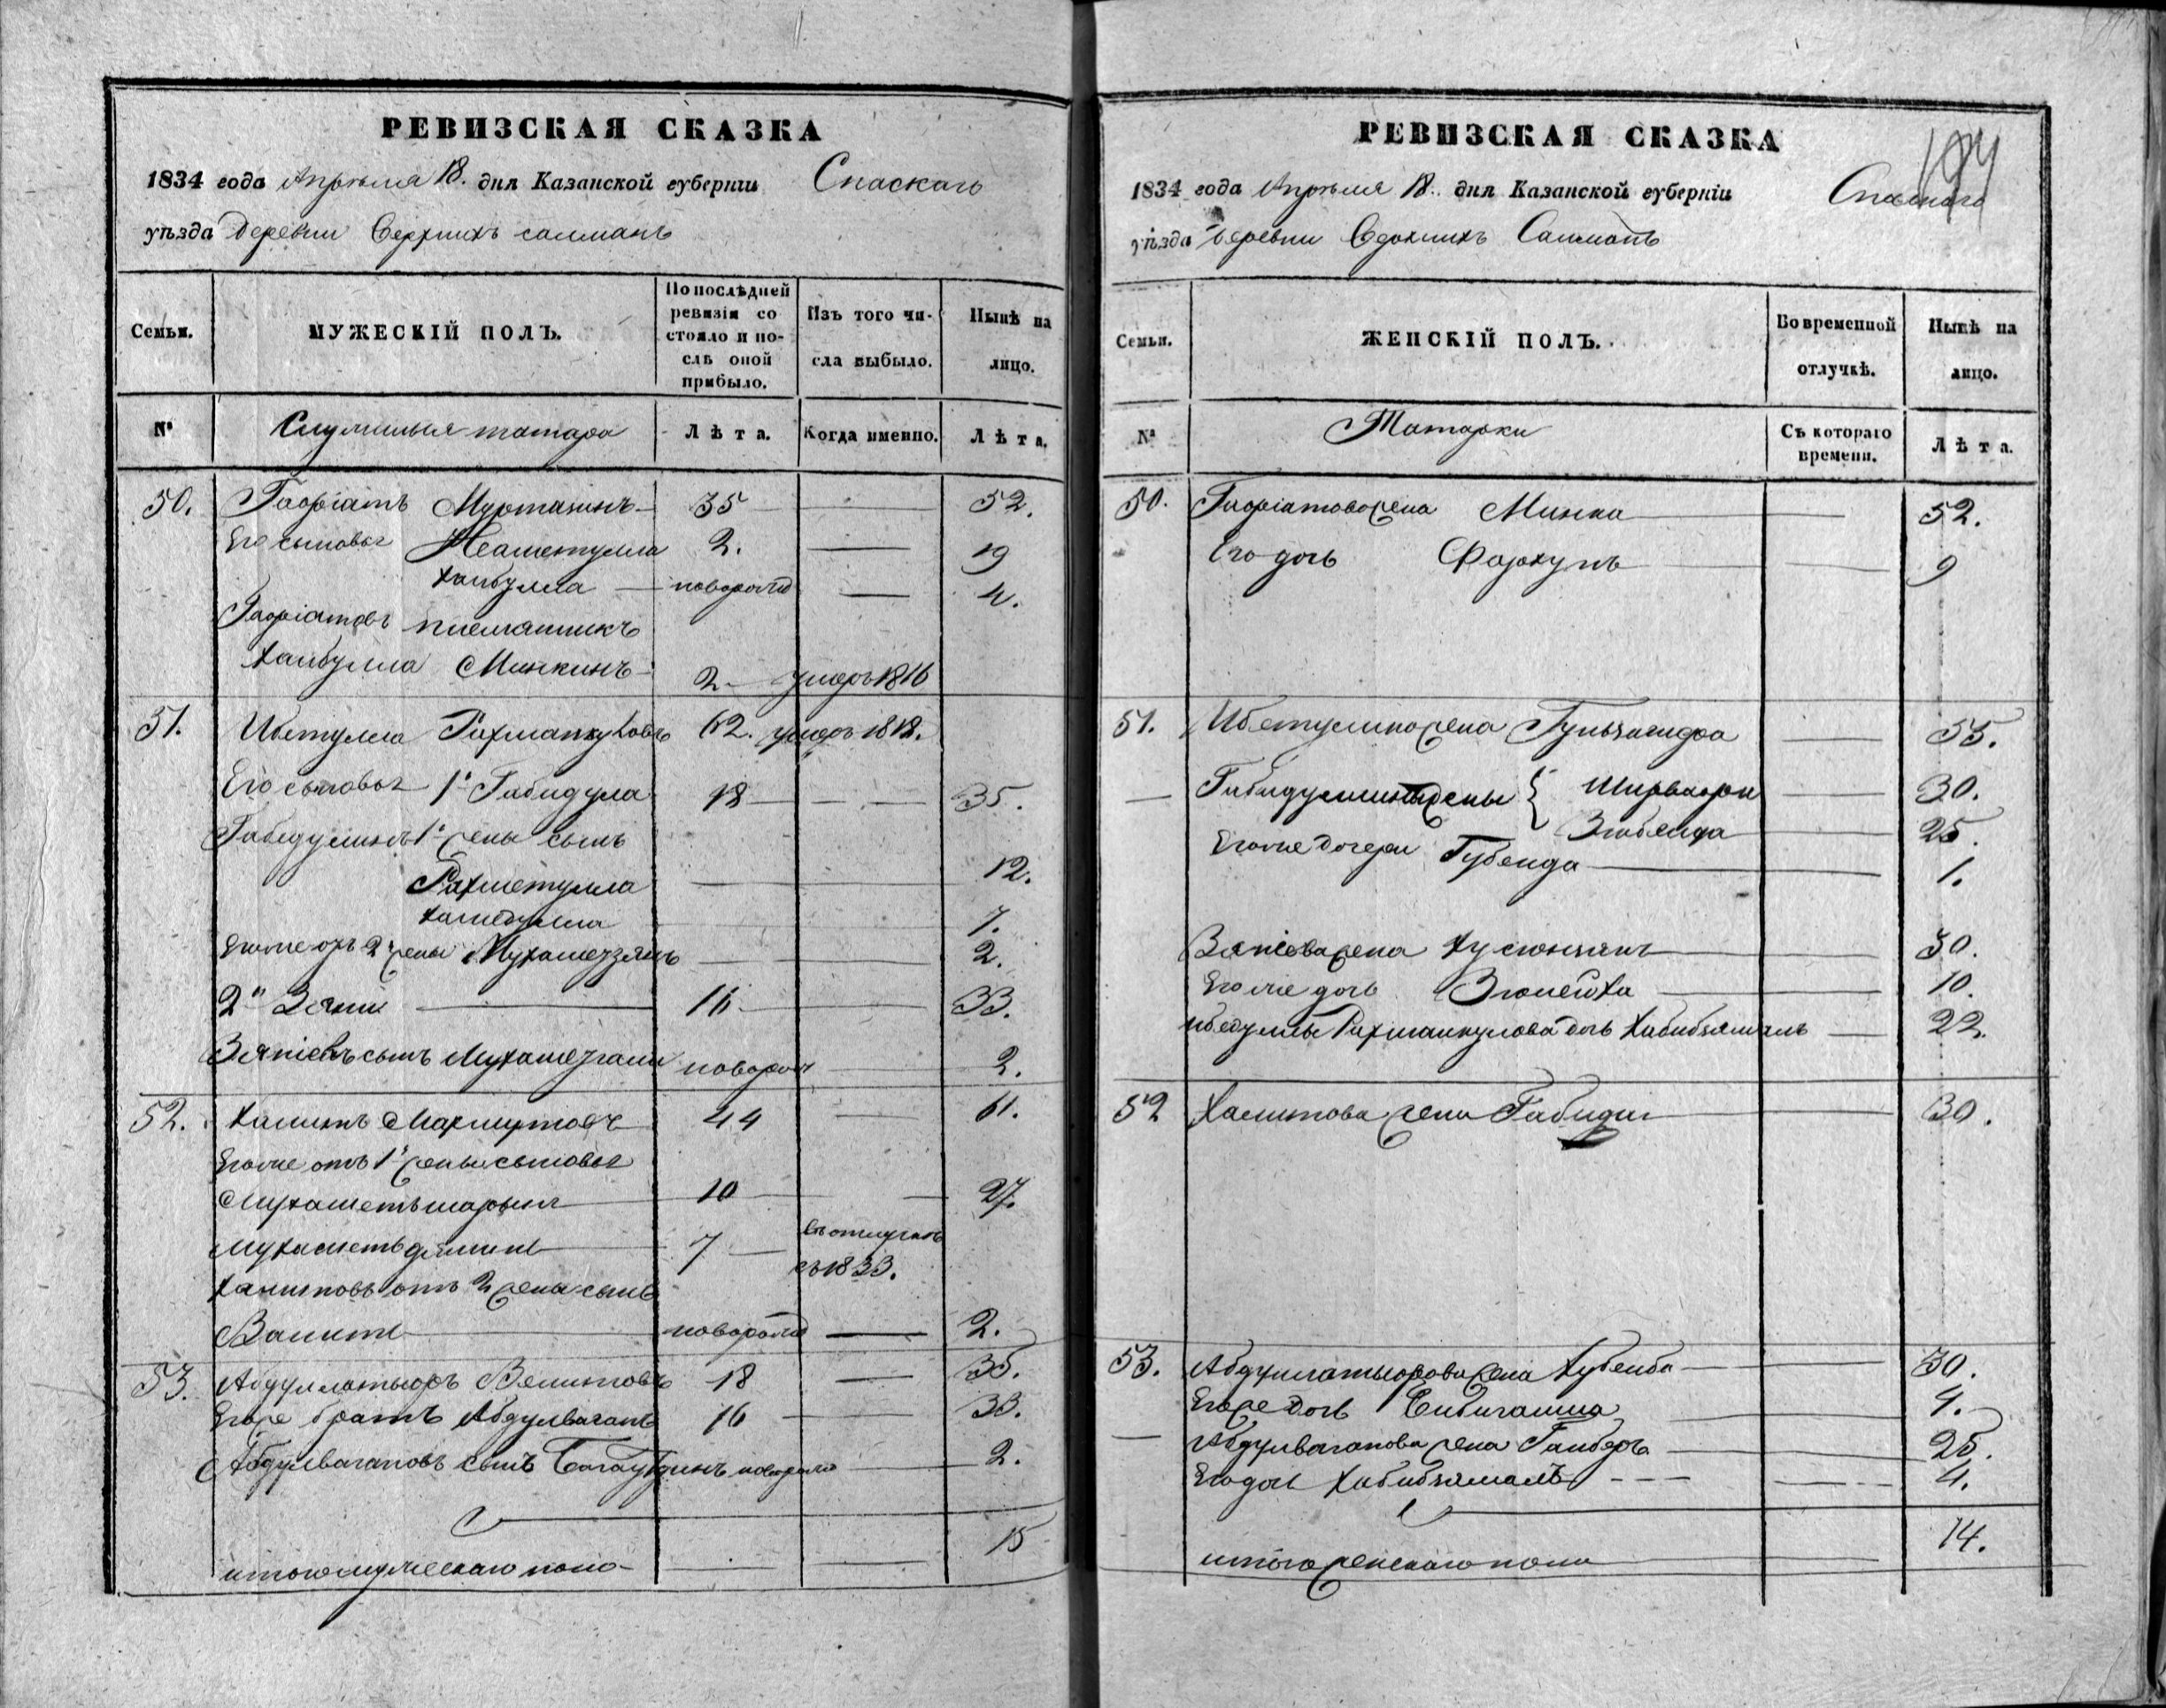 РЕВИЗСКАЯ СКАЗКА
1834 года Апрѣля 18. дня Казанской губерніи Спаскаго
уѣзда Деревни Верхнихъ салманъ
Семьи. МУЖЕСКІЙ ПОЛЪ. По послѣдней ревизіи состояло и послѣ оной прибыло. Изъ того числа выбыло. Нынѣ на лицо.
№ Служилыя татара Лѣта. Когда именно. Лѣта.
50. Гафіатъ Муртазинъ 35 52.
Его сыновья Неаметулла 2. 19
Хаибулла новорожд 4.
Гафіатовъ племянникъ
Хаибулла Минкинъ 2 умеръ 1816
51. Ибетулла Рахманкуловъ 62. умеръ 1818.
Его сыновья 1й Габидула 18 35.
Габидулинъ 1й жены сынъ
Рахметулла 12.
Хамедулла 7.
Егоже отъ 2й жены Мухамезянъ 2.
2й Зяни 16 33.
Зяніевъ сынъ Мухамезгали новорож 2.
52. Халитъ Махмутовъ 44 61.
Егоже отъ 1й жены сыновья
Мухаметьшарыпъ 10 27.
Мухаметь 7 въ отлучкѣ
съ 1833.
Халитовъ отъ 2 жены сынъ
Валитъ новорожд 2.
53. Абдуллатыфъ Велитовъ 18 35.
Егоже братъ Абдулваганъ 16 33.
Абдулвагановъ сынъ Багаутдинъ новорожд 2.
итого мужескаго пола 15
РЕВИЗСКАЯ СКАЗКА
1834 года Апрѣля 18. дня Казанской губерніи Спаскаго
уѣзда деревни Верхнихъ Салманъ
Семьи. ЖЕНСКІЙ ПОЛЪ. Во временной отлучкѣ. Нынѣ на лицо.
№ Татарки Съ котораго времени. Лѣта.
50. Гафіатова жена Минка 52.
Его дочь Фархунъ 9
51. Ибетулина жена 55.
Габидулины жены { 30.
25.
Егоже дочери Губейда 1.
Зяніева жена Хусюнзянъ 30.
Егоже дочь 10.
Ибедуллы Рахманкулова дочь Хабибзямалъ 22.
52 Халитова жена 30.
53. Абдуллатыфова жена Хубейба 30.
Егоже дочь Бибигайша 4.
Абдулваганова жена 25.
Его дочь Хабибзямалъ 4.
итого женскаго пола 14.